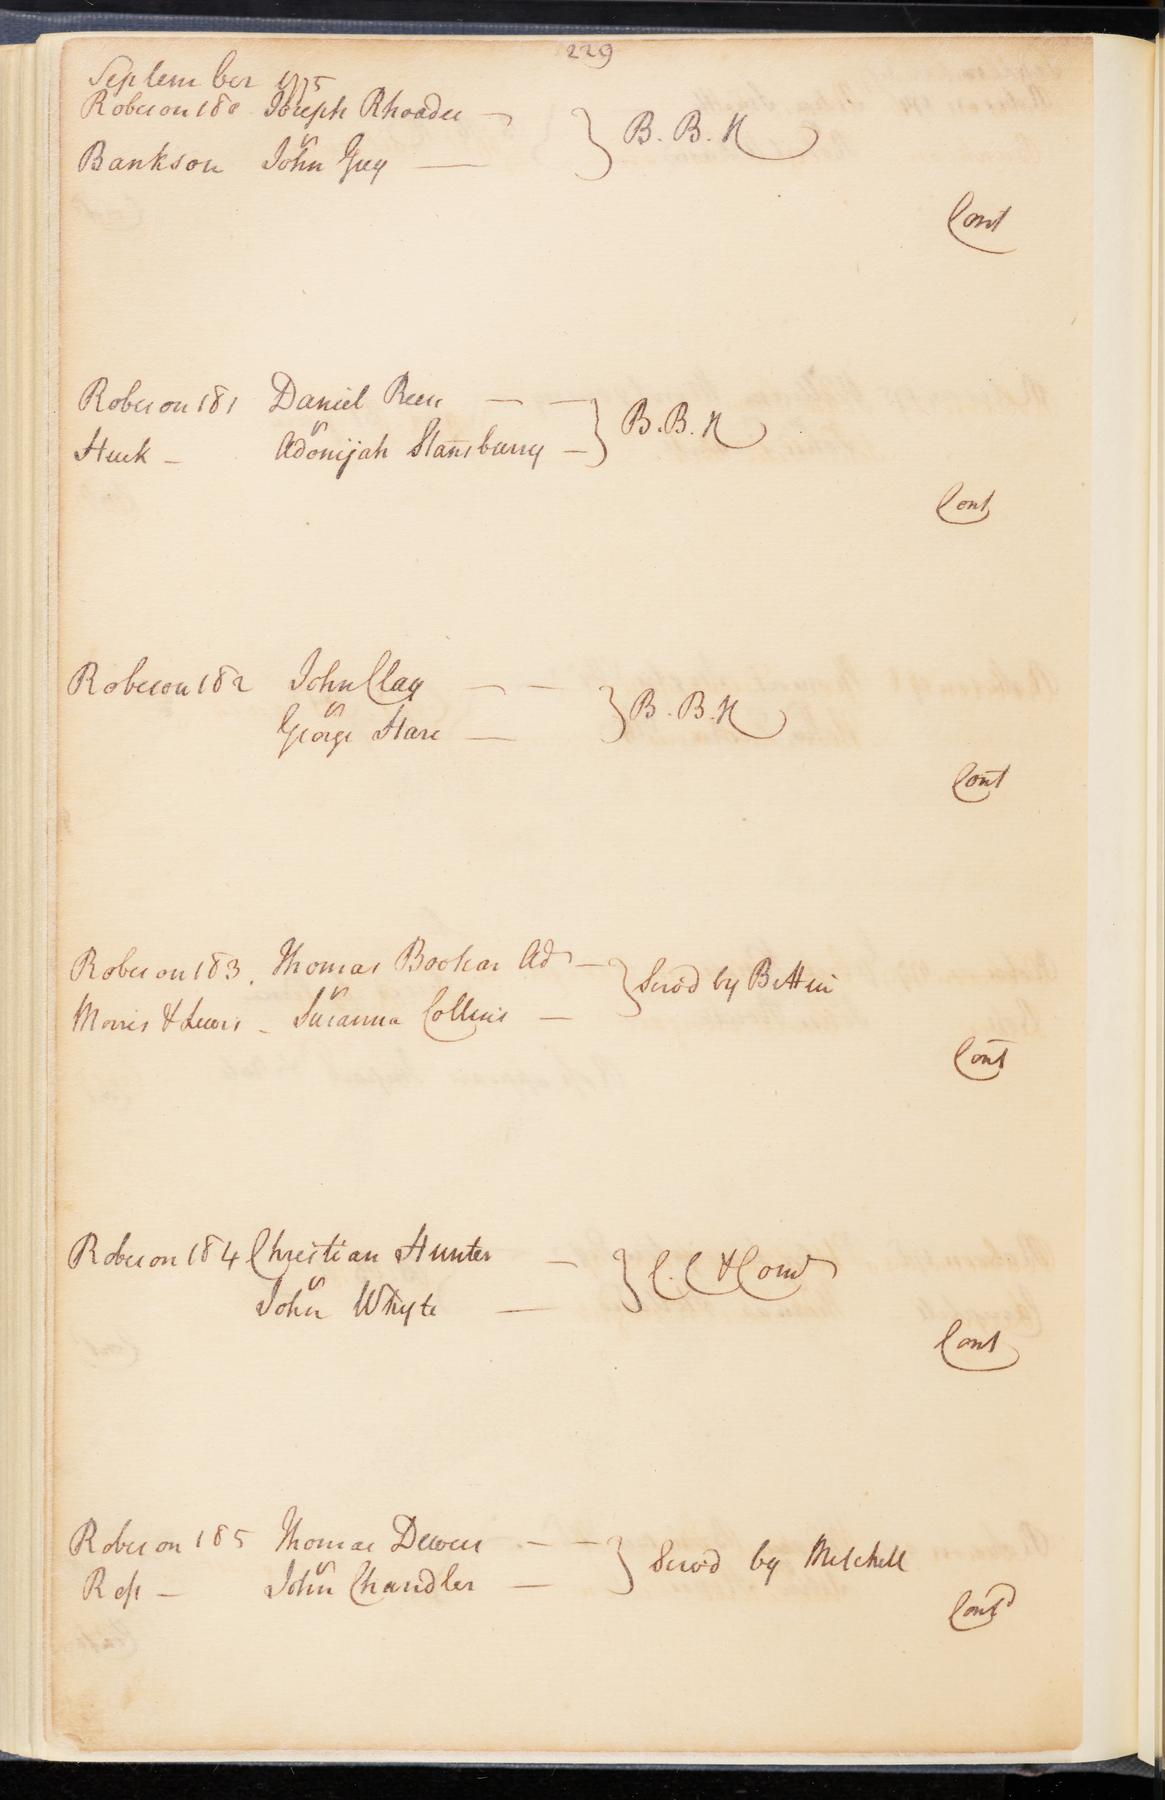 229
September 1775
Roberson 180 Joseph Rhoades
vs
Bankson John Guy
} B. B. N
Cont
Roberson 181 Daniel Rees
vs
Huck Adonijah Stansburry
} B. B. N
Cont
Roberson 182 John Clay
vs
George Hare
} B. B. N
Cont
Roberson 183. Thomas Bookar Adr
vs
Morris & Lewis Susanna Collins
} Servd by
Cont
Roberson 184 Christian Hunter
vs
John Whyte
} C. C & Comd
Cont
Roberson 185 Thomas Dewees
vs
Rep John Chandler
} Servd by Mitchell
Contd